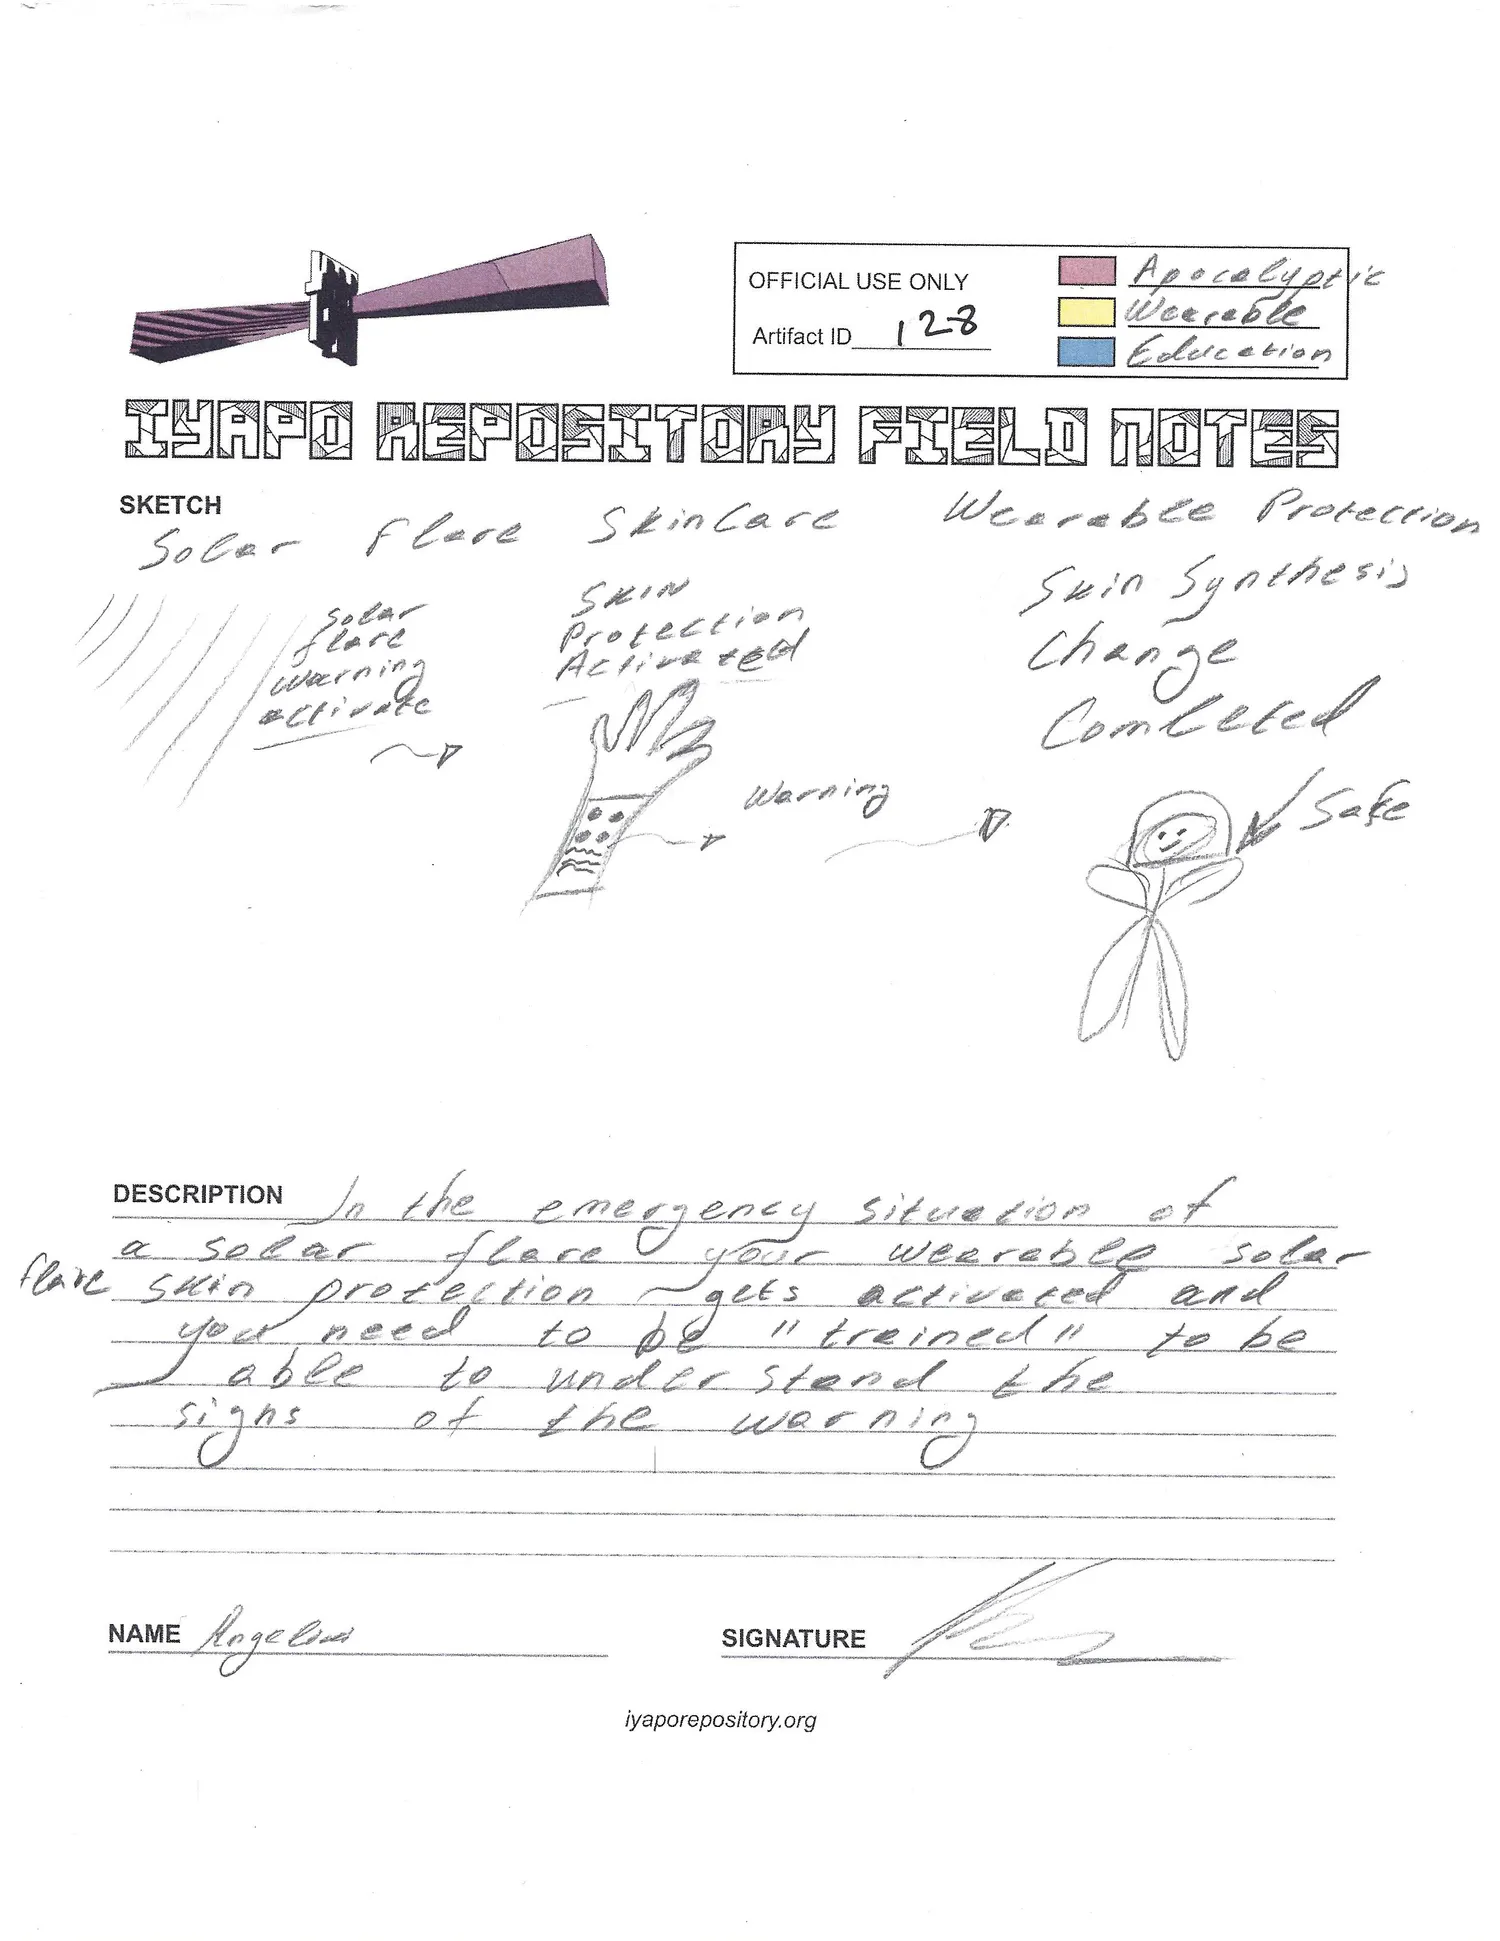 OFFICIAL USE ONLY
Artifact ID 128
Apocalyptic
Wearable
Education
IYAPO REPOSITORY FIELD NOTES
SKETCH
Solar Flare SkinCare Wearable Protection
Solar
flare
warning
activate
SKIN
Protection
Activated
Skin Synthesis
Change
Comleted
Warning
Safe
DESCRIPTION In the emergency situation of
a solar flare your wearable solar
flare skin protection gets activated and
you need to be "trained" to be
able to understand the
signs of the warning
NAME
SIGNATURE
iyaporepository.org